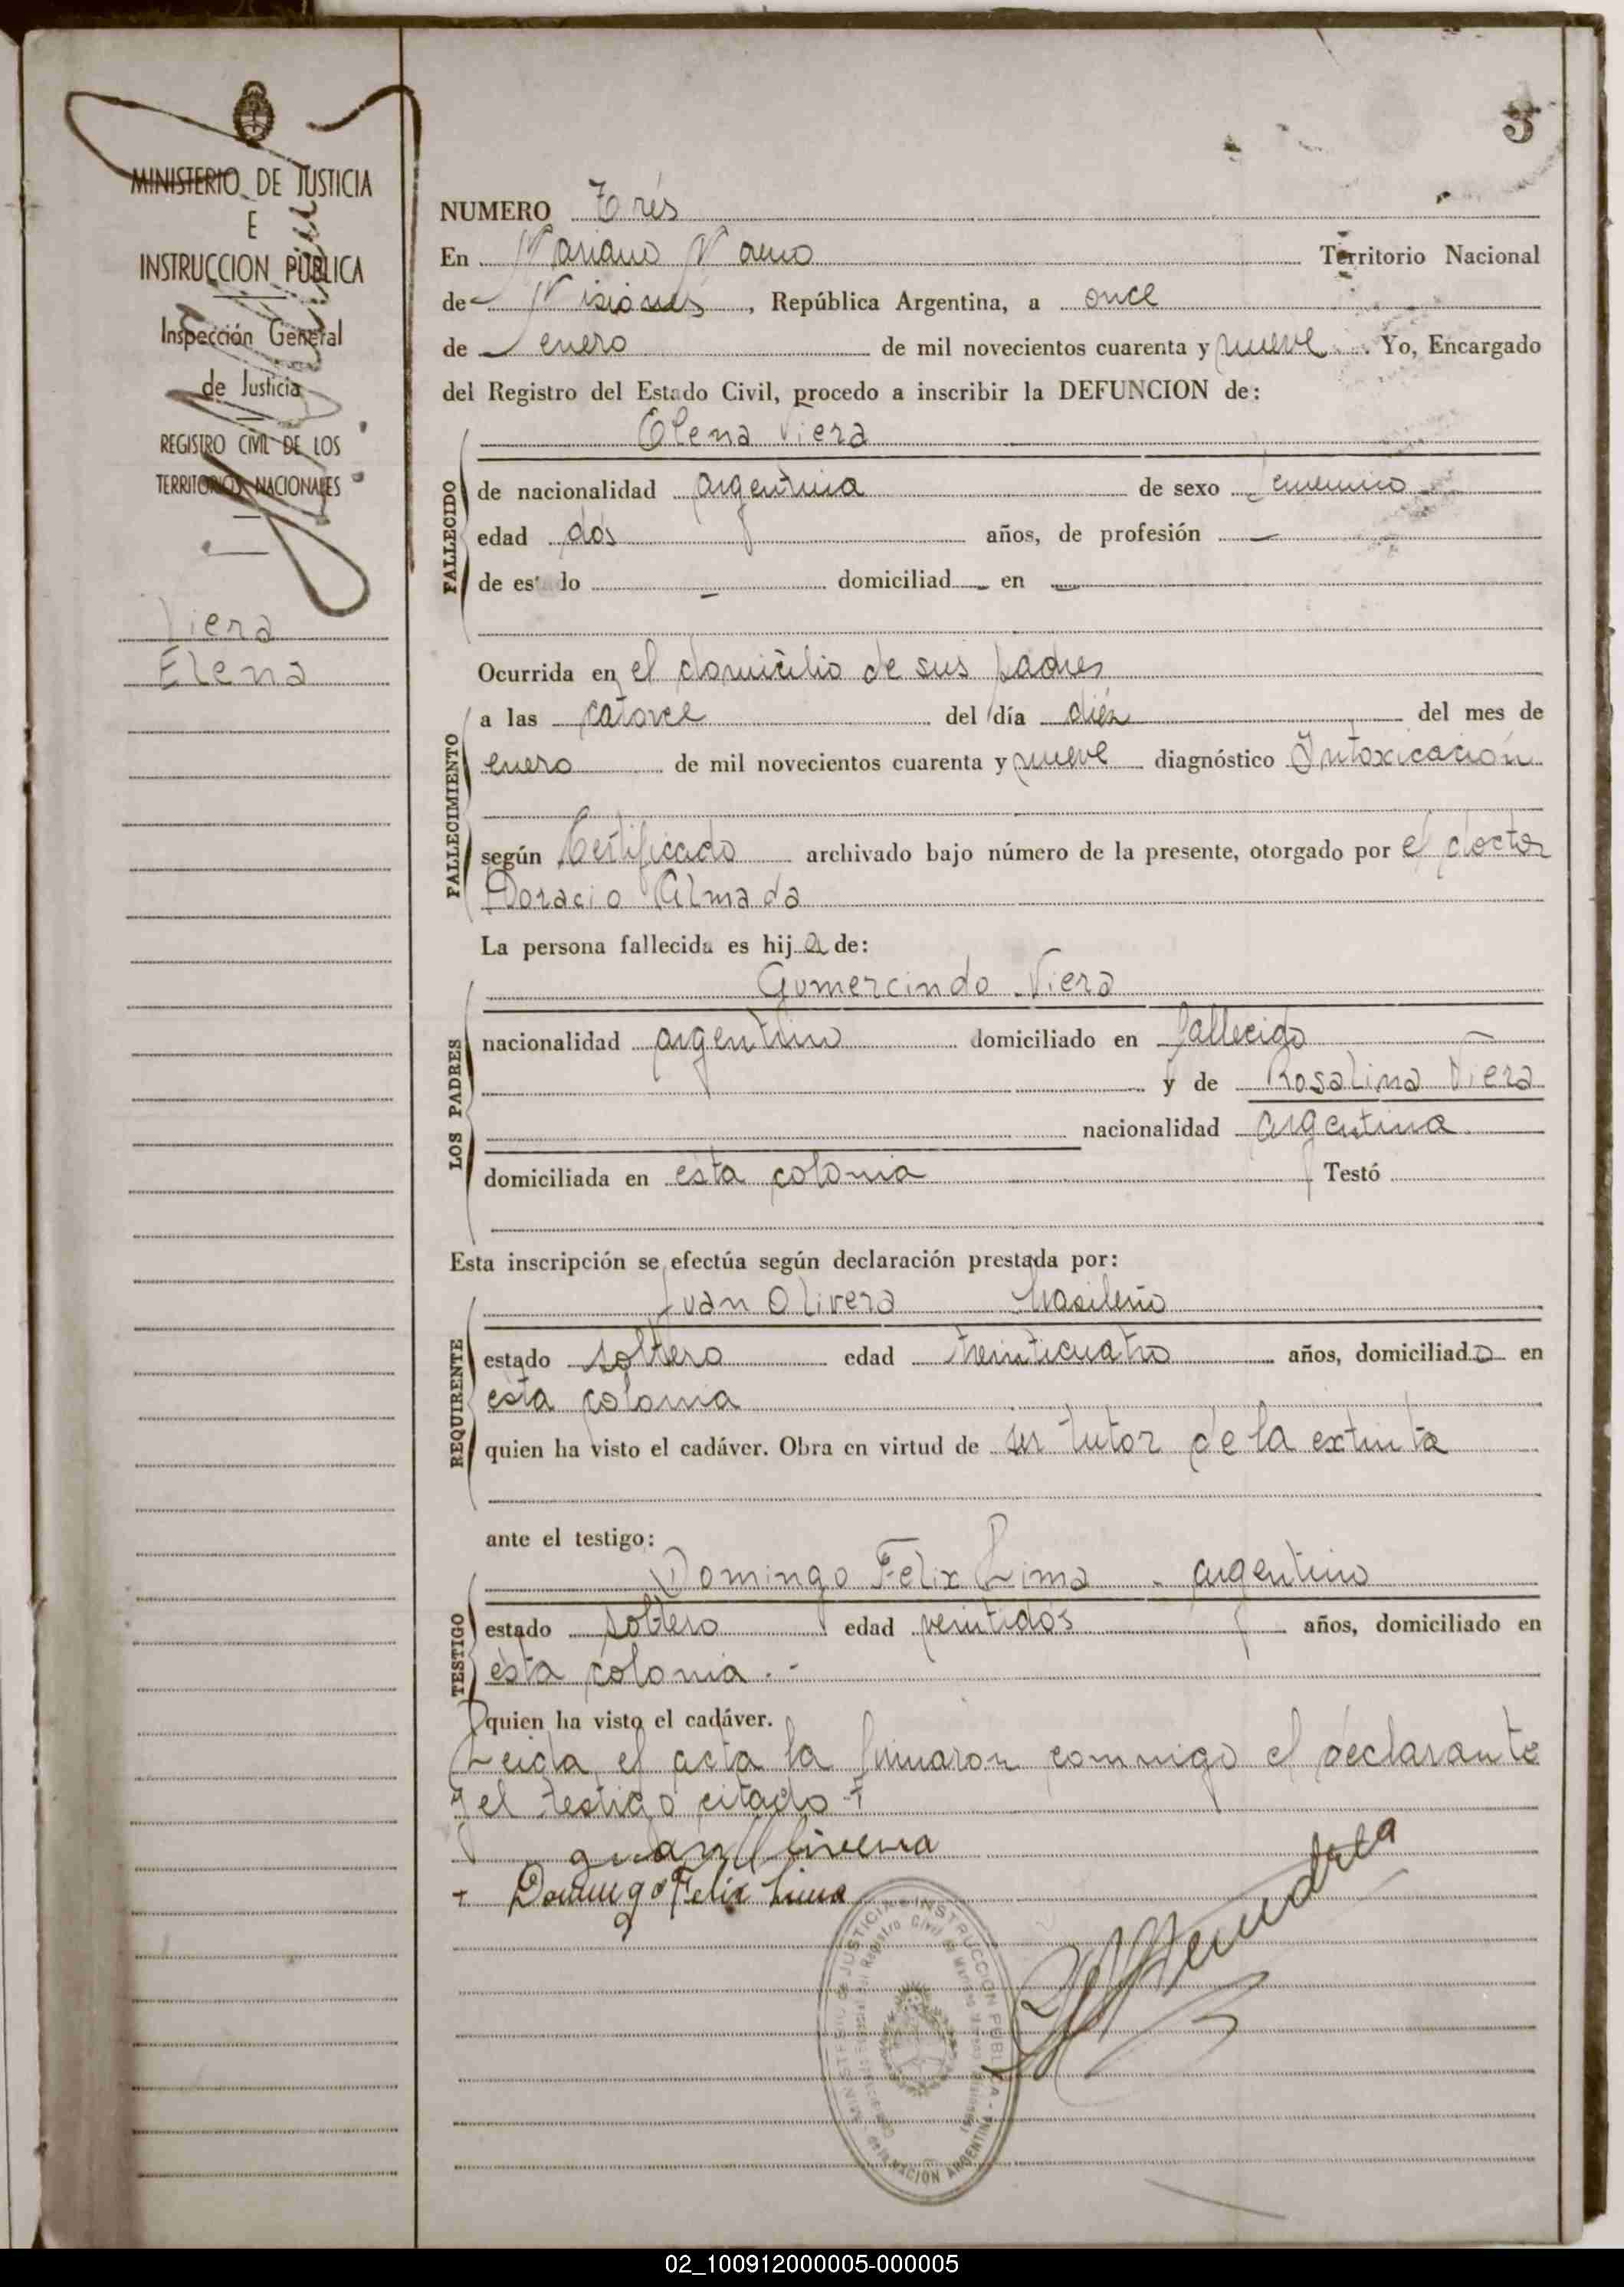 3
MINISTERIO DE JUSTICIA
E
INSTRUCCION PUBLICA
Inspección General
de Justicia
REGISTRO CIVIL DE LOS
TERRITORIOS NACIONALES
Viera
Elena
NUMERO Trés
En Mariano Moreno Territorio Nacional
de Misiones, República Argentina, a once
de enero de mil novecientos cuarenta y nueve. Yo, Encargado
del Registro del Estado Civil, procedo a inscribir la DEFUNCION de:
Elena Viera
FALLECIDO
de nacionalidad argentina de sexo femenino
edad dos años, de profesión —
de estado — domiciliad — en —
Ocurrida en el domicilio de sus padres
FALLECIMIENTO
a las catorce del día diéz del mes de
enero de mil novecientos cuarenta y nueve diagnóstico Intoxicación
según Certificado archivado bajo número de la presente, otorgado por el doctor
Horacio Almada
La persona fallecida es hija de:
LOS PADRES
Gumercindo Viera
nacionalidad argentino domiciliado en fallecido —
y de Rosalina Viera
nacionalidad argentina
domiciliada en esta colonia Testó
Esta inscripción se efectúa según declaración prestada por:
REQUIRENTE
Juan Olivera brasileño
estado soltero edad treinticuatro años, domiciliado en
esta colonia
quien ha visto el cadáver. Obra en virtud de ser tutor de la extinta
ante el testigo:
TESTIGO
Domingo Felix Lima - argentino
estado soltero edad veintidos años, domiciliado en
esta colonia.-
quien ha visto el cadáver.
Leida el acta la firmaron conmigo el declarante
y el testigo citado.+
Juan Olivera
+ Domingo Felix Lima
MINISTERIO DE JUSTICIA e INSTRUCCION PUBLICA - de la NACION ARGENTINA
02_100912000005-000005